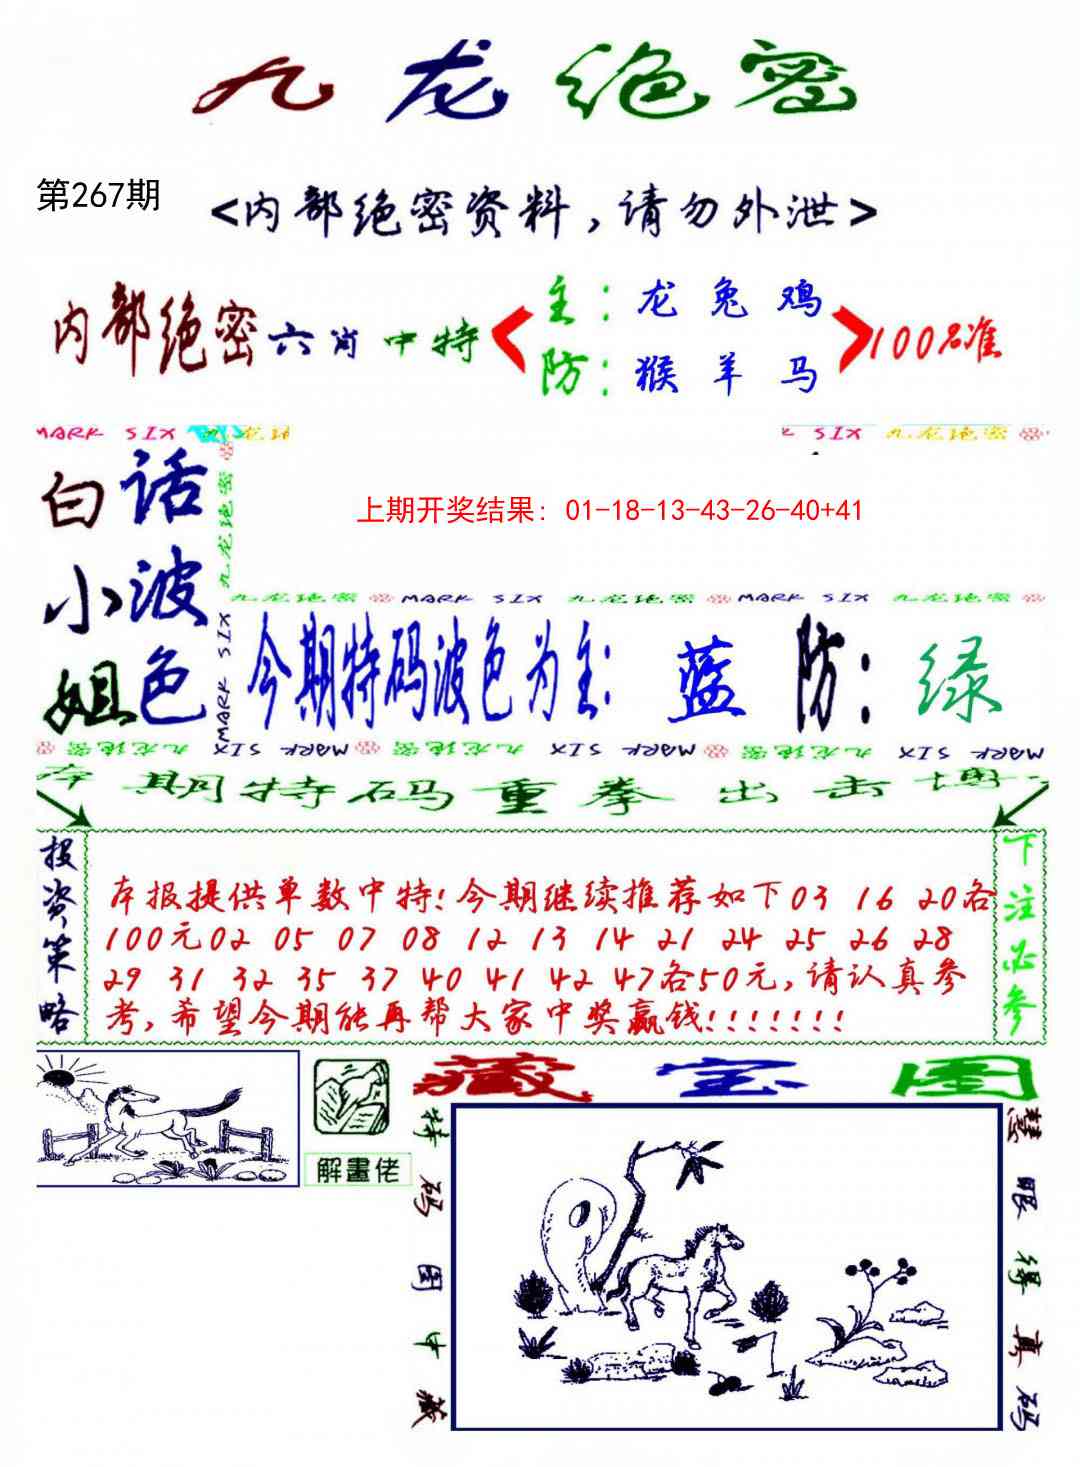 九龙绝密
第267期
<内部绝密资料,请勿外泄>
内部绝密六肖中特
主：龙兔鸡
防：猴羊马
100%准
MARK SIX 九龙绝密
K SIX 九龙绝密
白小姐
话波色
九龙绝密
MARK SIX
上期开奖结果: 01-18-13-43-26-40+41
九龙绝密 MARK SIX 九龙绝密 MARK SIX 九龙绝密
今期特码波色为主: 蓝 防: 绿
九龙绝密 MARK SIX 九龙绝密 MARK SIX 九龙绝密 MARK SIX
本期特码重拳出击博
投资策略
本报提供单数中特!今期继续推荐如下03 16 20各
100元02 05 07 08 12 13 14 21 24 25 26 28
29 31 32 35 37 40 41 42 47各50元,请认真参
考,希望今期能再帮大家中奖赢钱!!!!!!!
下注必参
解畫佬
藏宝图
特码图中藏
慧眼得真码